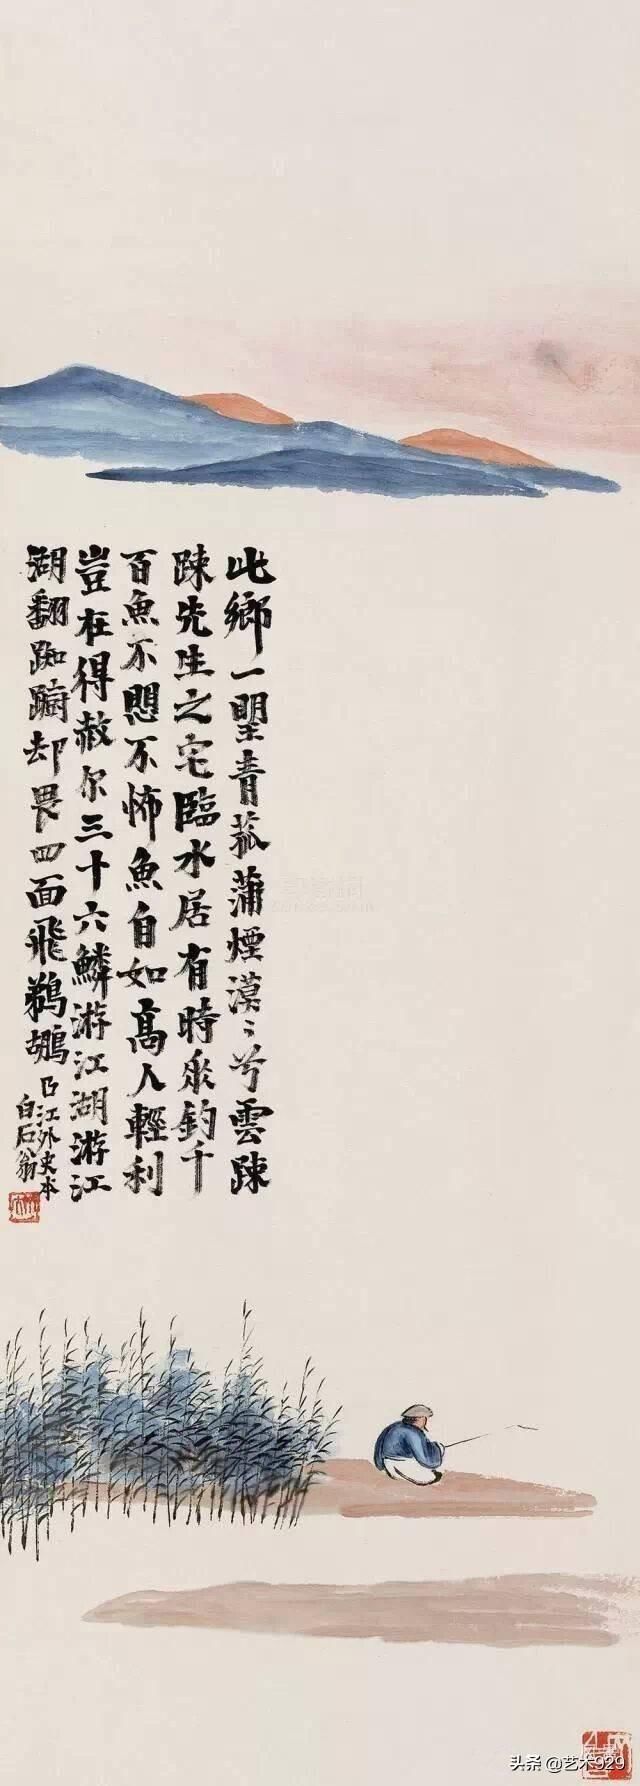 此鄉一望青菰蒲煙漠〻兮雲踈
踈先生之宅臨水居有時垂釣千
百魚不愳不怖魚自如高人輕利
豈在得赦尔三十六鱗游江湖游江
湖翻踟蹰却畏四面飛鵜鶘
曲江外史本
白石翁
头条 @艺术929